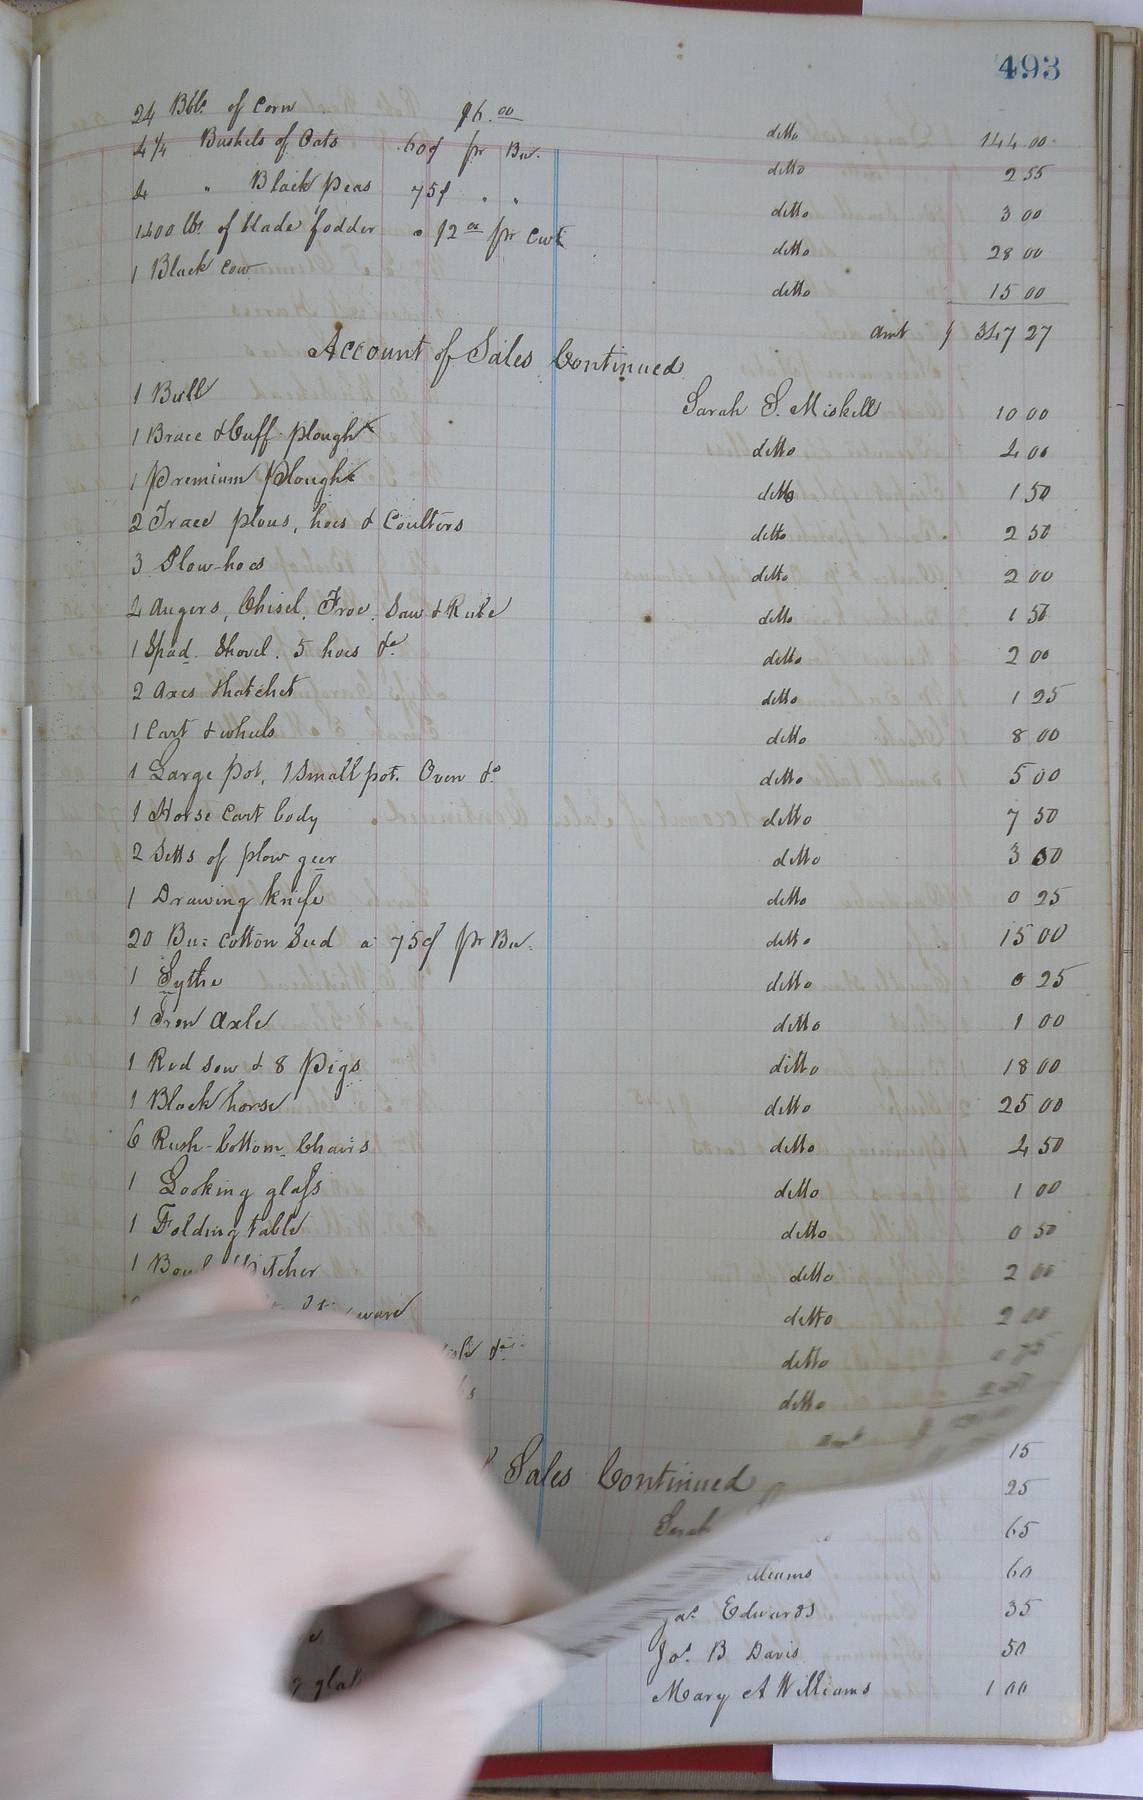 493
24 Bbls. of Corn $6.00 ditto 144 00
4 1/4 Bushels of Oats .60¢ pr Bu. ditto 2 55
4 " Black peas 75¢ " " ditto 3 00
1400 lbs. of blade fodder @ $2 00 pr Cwt ditto 28 00
1 Black Cow ditto 15 00
Amt $ 347 27
Account of Sales Continued
1 Bull Sarah S. Miskell 10 00
1 Brace & Cuff plough ditto 4 00
1 Premium Plough ditto 1 50
2 Trace plous, hoes & Coulters ditto 2 50
3 Plow-hoes ditto 2 00
4 Augers, Chisel, Froe, Saw & Rule ditto 1 50
1 Spad. Shovel. 5 hoes &c ditto 2 00
2 Axes & hatchet ditto 1 25
1 Cart & wheels ditto 8 00
1 Large pot, 1 Small pot. Oven &c ditto 5 00
1 Horse Cart body ditto 7 50
2 Setts of plow geer ditto 3 50
1 Drawing knife ditto 0 25
20 Bu: Cotton Seed a 75¢ pr Bu. ditto 15 00
1 Sythe ditto 0 25
1 Iron Axle ditto 1 00
1 Red Sow & 8 Pigs ditto 18 00
1 Black horse ditto 25 00
6 Rush-bottom Chairs ditto 4 50
1 Looking glass ditto 1 00
1 Folding table ditto 0 50
1 Bowl & Pitcher ditto 2 00
ware ditto 2 00
&c ditto
ditto
Amt $
Sales Continued
15
25
65
60
Jas. Edwards 35
Jos. B Davis 50
Mary A Williams 1 00